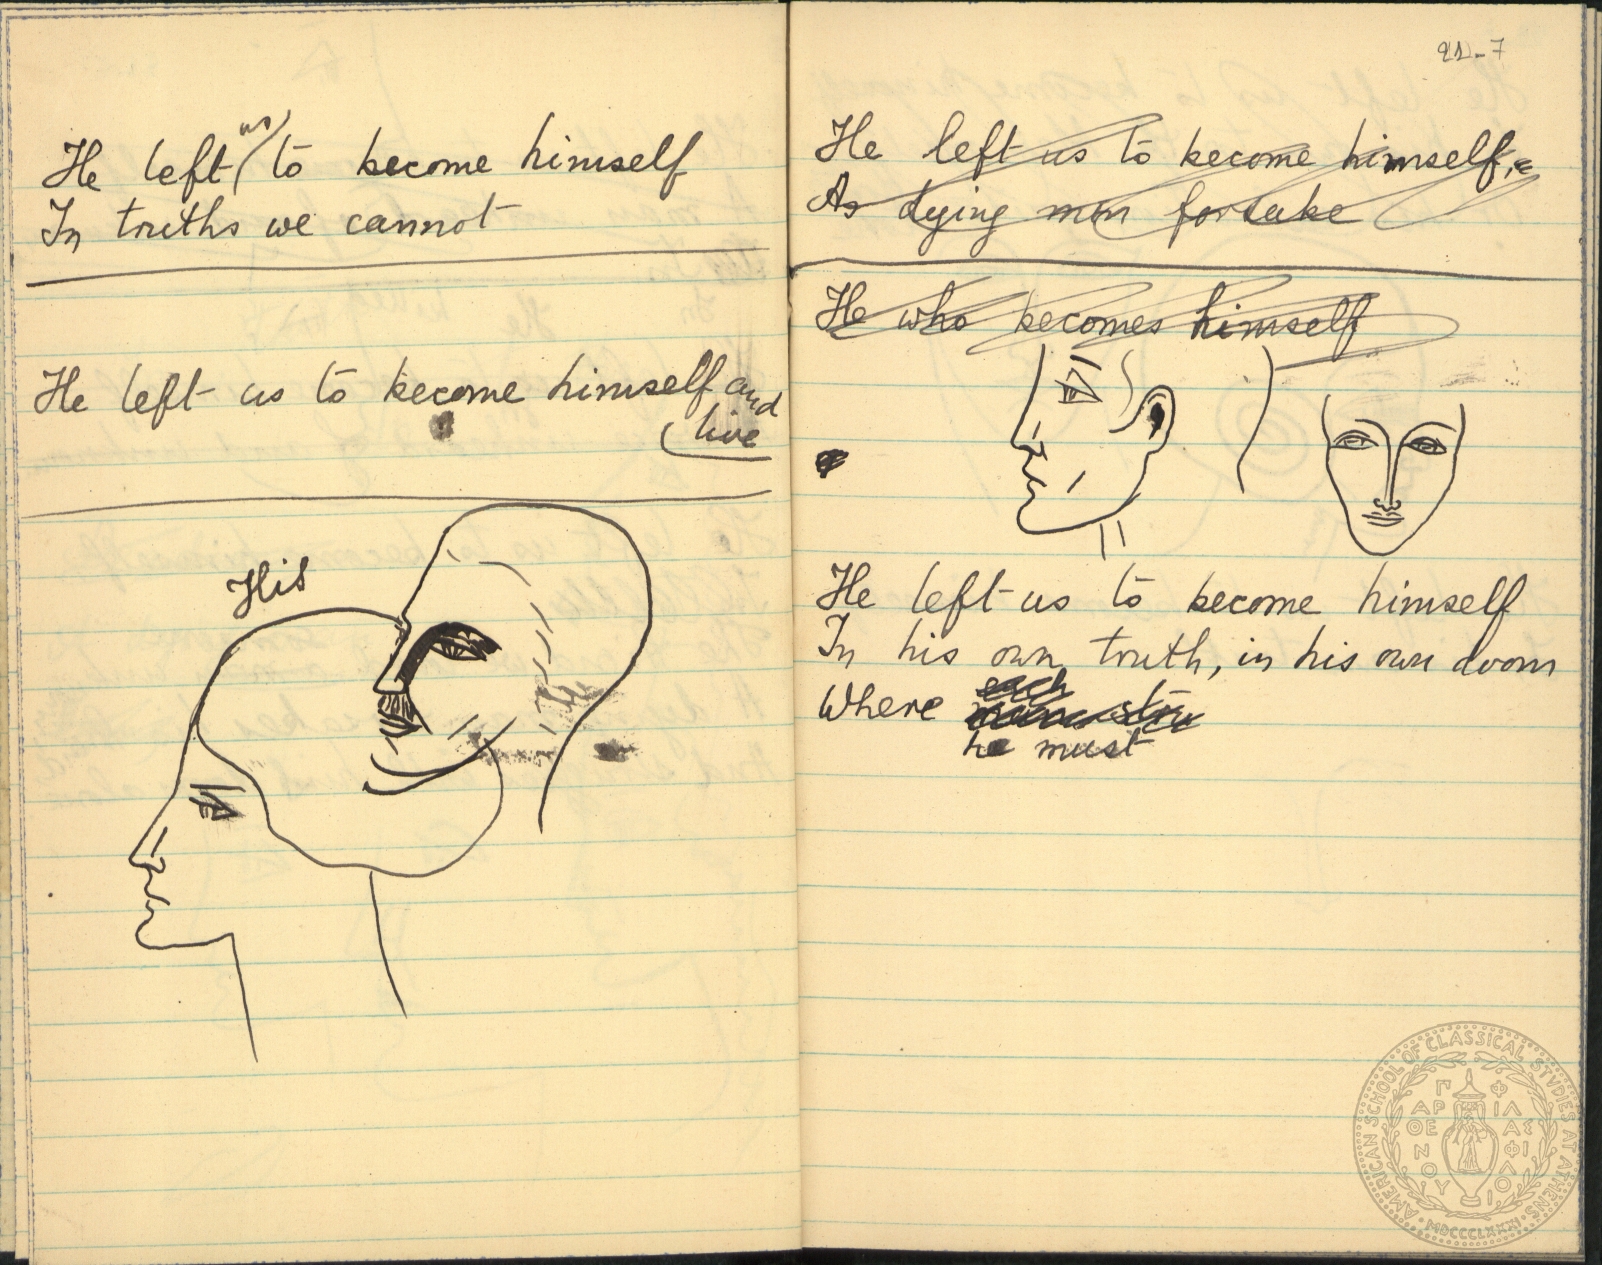 He left us to become himself
In truths we cannot
He left us to become himself and
live
His
21-7
He left us to become himself,
As dying men forsake
He who becomes himself
He left us to become himself
In his own truth, in his own doom
Where each
he must
AMERICAN SCHOOL OF CLASSICAL STVDIES AT ATHENS
MDCCCLXXXI
ΠΑΡΘΕΝΟΥ
ΦΙΛΑΣ ΦΙΛΟ